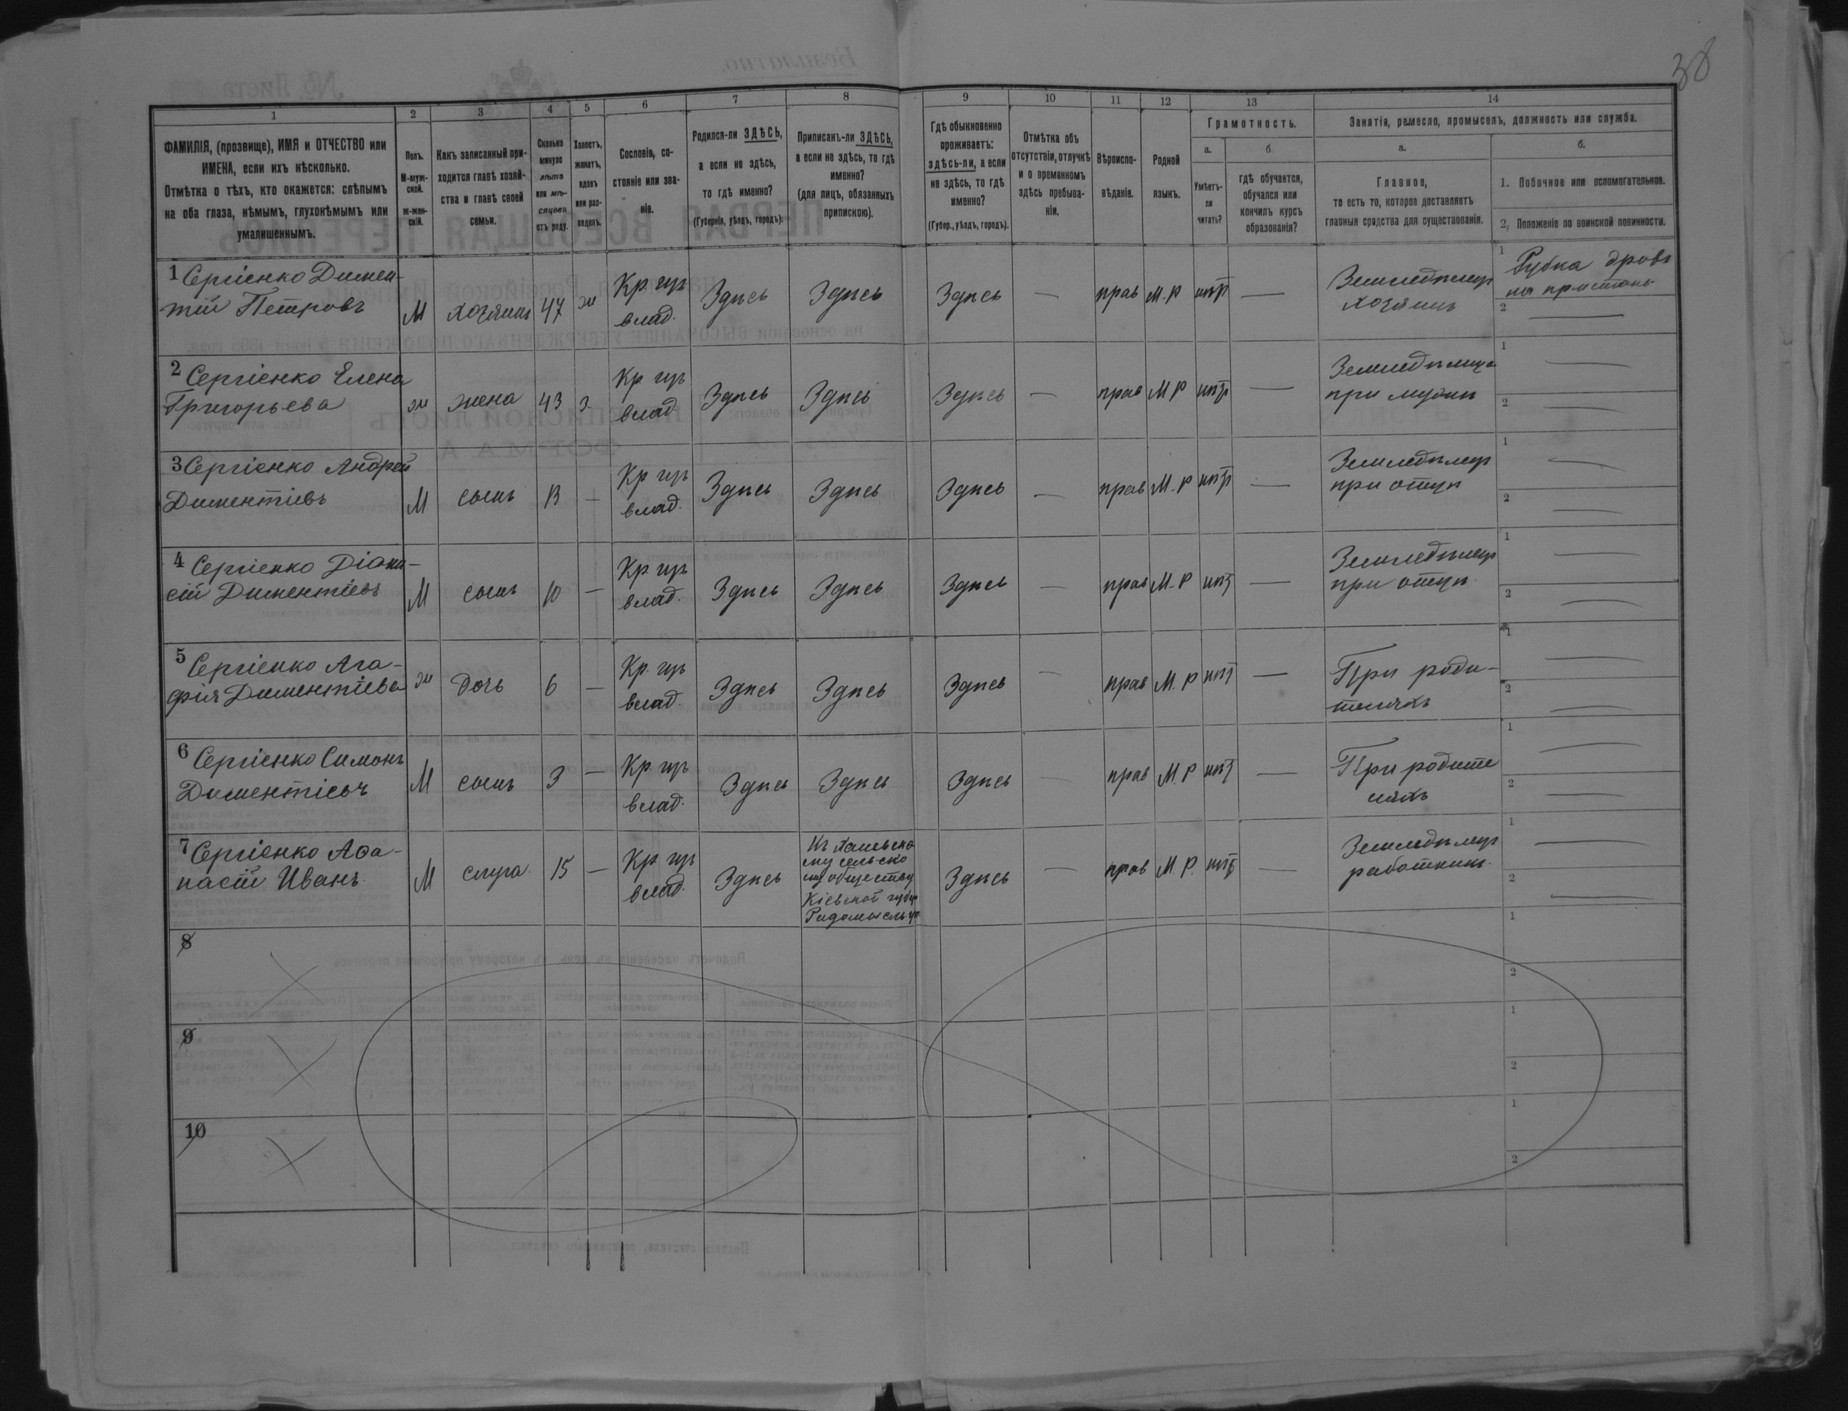 38
1 2 3 4 5 6 7 8 9 10 11 12 13 14
ФАМИЛІЯ, (прозвище), ИМЯ и ОТЧЕСТВО или
ИМЕНА, если ихъ нѣсколько.
Отмѣтка о тѣхъ, кто окажется: слѣпымъ
на оба глаза, нѣмымъ, глухонѣмымъ или
умалишеннымъ.
Полъ.
М-муж-
ской.
Ж-жен-
скій.
Какъ записанный при-
ходится главѣ хозяй-
ства и главѣ своей
семьи.
Сколько
минуло
лѣтъ
или мѣ-
сяцевъ
отъ роду.
Холостъ,
женатъ,
вдовъ
или раз-
веденъ.
Сословіе, со-
стояніе или зва-
ніе.
Родился-ли ЗДѢСЬ,
а если не здѣсь,
то гдѣ именно?
(Губернія, уѣздъ, городъ).
Приписанъ-ли ЗДѢСЬ,
а если не здѣсь, то гдѣ
именно?
(для лицъ, обязанныхъ
припискою).
Гдѣ обыкновенно
проживаетъ:
здѣсь-ли, а если
не здѣсь, то гдѣ
именно?
(Губер., уѣздъ, городъ).
Отмѣтка объ
отсутствіи, отлучкѣ
и о временномъ
здѣсь пребыва-
ніи.
Вѣроиспо-
вѣданіе.
Родной
языкъ.
Грамотность.
а.
Умѣетъ-
ли
читать?
б
гдѣ обучается,
обучался или
кончилъ курсъ
образованія?
Занятіе, ремесло, промыселъ, должность или служба.
а.
Главное,
то есть то, которое доставляетъ
главныя средства для существованія.
б.
1. Побочное или вспомогательное.
2. Положеніе по воинской повинности.
1 Сергіенко Димен-
тій Петровъ
М хозяинъ 47 ж Кр. изъ
влад. Здѣсь Здѣсь Здѣсь — прав М.Р нѣтъ — Земледѣлецъ
хозяинъ
1 Рубка дровъ
на пристани
2 —
2 Сергіенко Елена
Григорьева
ж жена 43 з Кр изъ
влад Здѣсь Здѣсь Здѣсь — прав М Р нѣтъ — Земледѣлица
при мужѣ
1 —
2 —
3 Сергіенко Андрей
Диментіевъ
М сынъ 13 — Кр изъ
влад. Здѣсь Здѣсь Здѣсь — прав М.Р нѣтъ — Земледѣлецъ
при отцѣ
1 —
2 —
4 Сергіенко Діони-
сій Диментіевъ
М сынъ 10 — Кр изъ
влад. Здѣсь Здѣсь Здѣсь — прав М.Р нѣтъ — Земледѣлецъ
при отцѣ
1 —
2 —
5 Сергіенко Ага-
фія Диментіева
ж дочь 6 — Кр. изъ
влад. Здѣсь Здѣсь Здѣсь — прав М.Р нѣтъ — При роди-
теляхъ
1 —
2 —
6 Сергіенко Симонъ
Диментіевъ
М сынъ 3 — Кр изъ
влад. Здѣсь Здѣсь Здѣсь — прав М Р нѣтъ — При родите
ляхъ
1 —
2 —
7 Сергіенко Афа-
насій Иванъ
М слуга 15 — Кр изъ
влад. Здѣсь
му сельско
му обществу
Кіевской губер
Радомысль у
Здѣсь — прав М.Р. нѣтъ — Земледѣлецъ
работникъ.
1 —
2 —
8
1
2
9
1
2
10
1
2